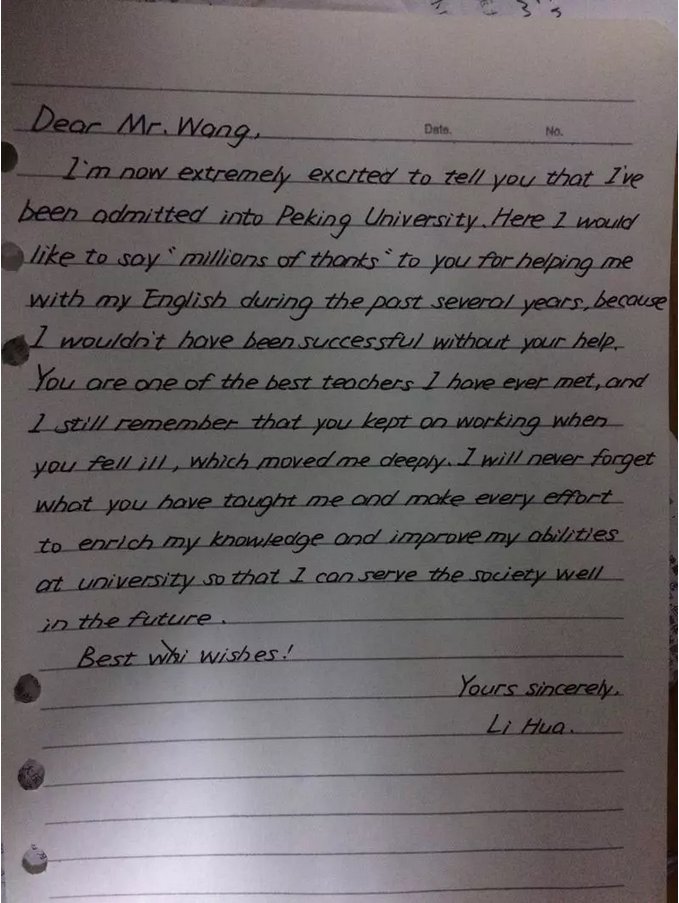 Dear Mr. Wang,
Date. No.
I'm now extremely excited to tell you that I've
been admitted into Peking University. Here I would
like to say "millions of thanks" to you for helping me
with my English during the past several years, because
I wouldn't have been successful without your help.
You are one of the best teachers I have ever met, and
I still remember that you kept on working when
you fell ill, which moved me deeply. I will never forget
what you have taught me and make every effort
to enrich my knowledge and improve my abilities
at university so that I can serve the society well
in the future.
Best whi wishes!
Yours sincerely,
Li Hua.